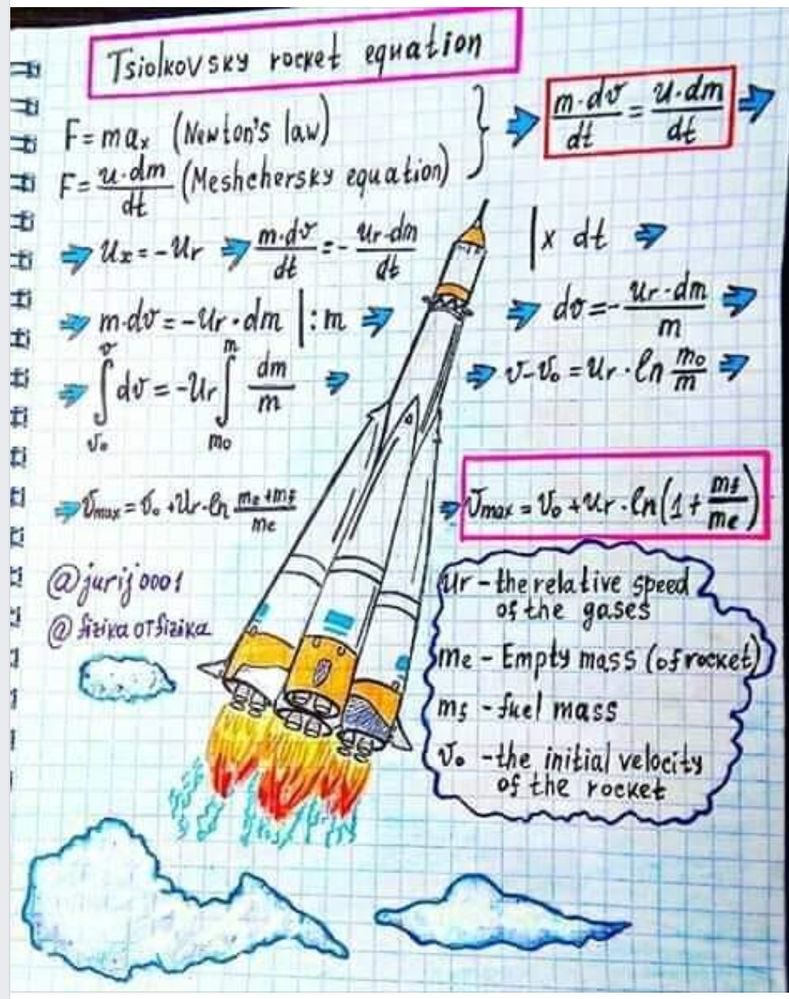 Tsiolkovsky rocket equation
F = maₓ (Newton's law)
F = u·dm/dt (Meshchersky equation)
} ⇒ m·dv/dt = u·dm/dt ⇒
⇒ uₓ = -uᵣ ⇒ m·dv/dt = - uᵣ·dm/dt | x dt ⇒
⇒ m·dv = -uᵣ·dm | :m ⇒ dv = - uᵣ·dm/m ⇒
⇒ ∫ᵥ₀ᵛ dv = -uᵣ ∫ₘ₀ᵐ dm/m ⇒ v-v₀ = uᵣ·ln m₀/m ⇒
⇒ vmax = v₀ + uᵣ·ln (me+mf)/me ⇒ vmax = v₀ + uᵣ·ln(1 + mf/me)
@jurij0001
@fizikaotfizika
uᵣ - the relative speed
of the gases
me - Empty mass (of rocket)
mf - fuel mass
v₀ - the initial velocity
of the rocket